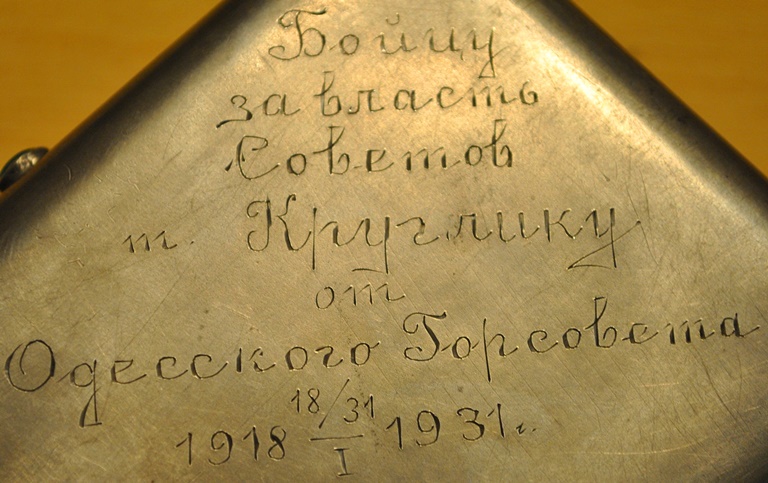 Бойцу
за власть
Советов
т. Круглику
от
Одесского Горсовета
1918 18/31 I 1931 г.